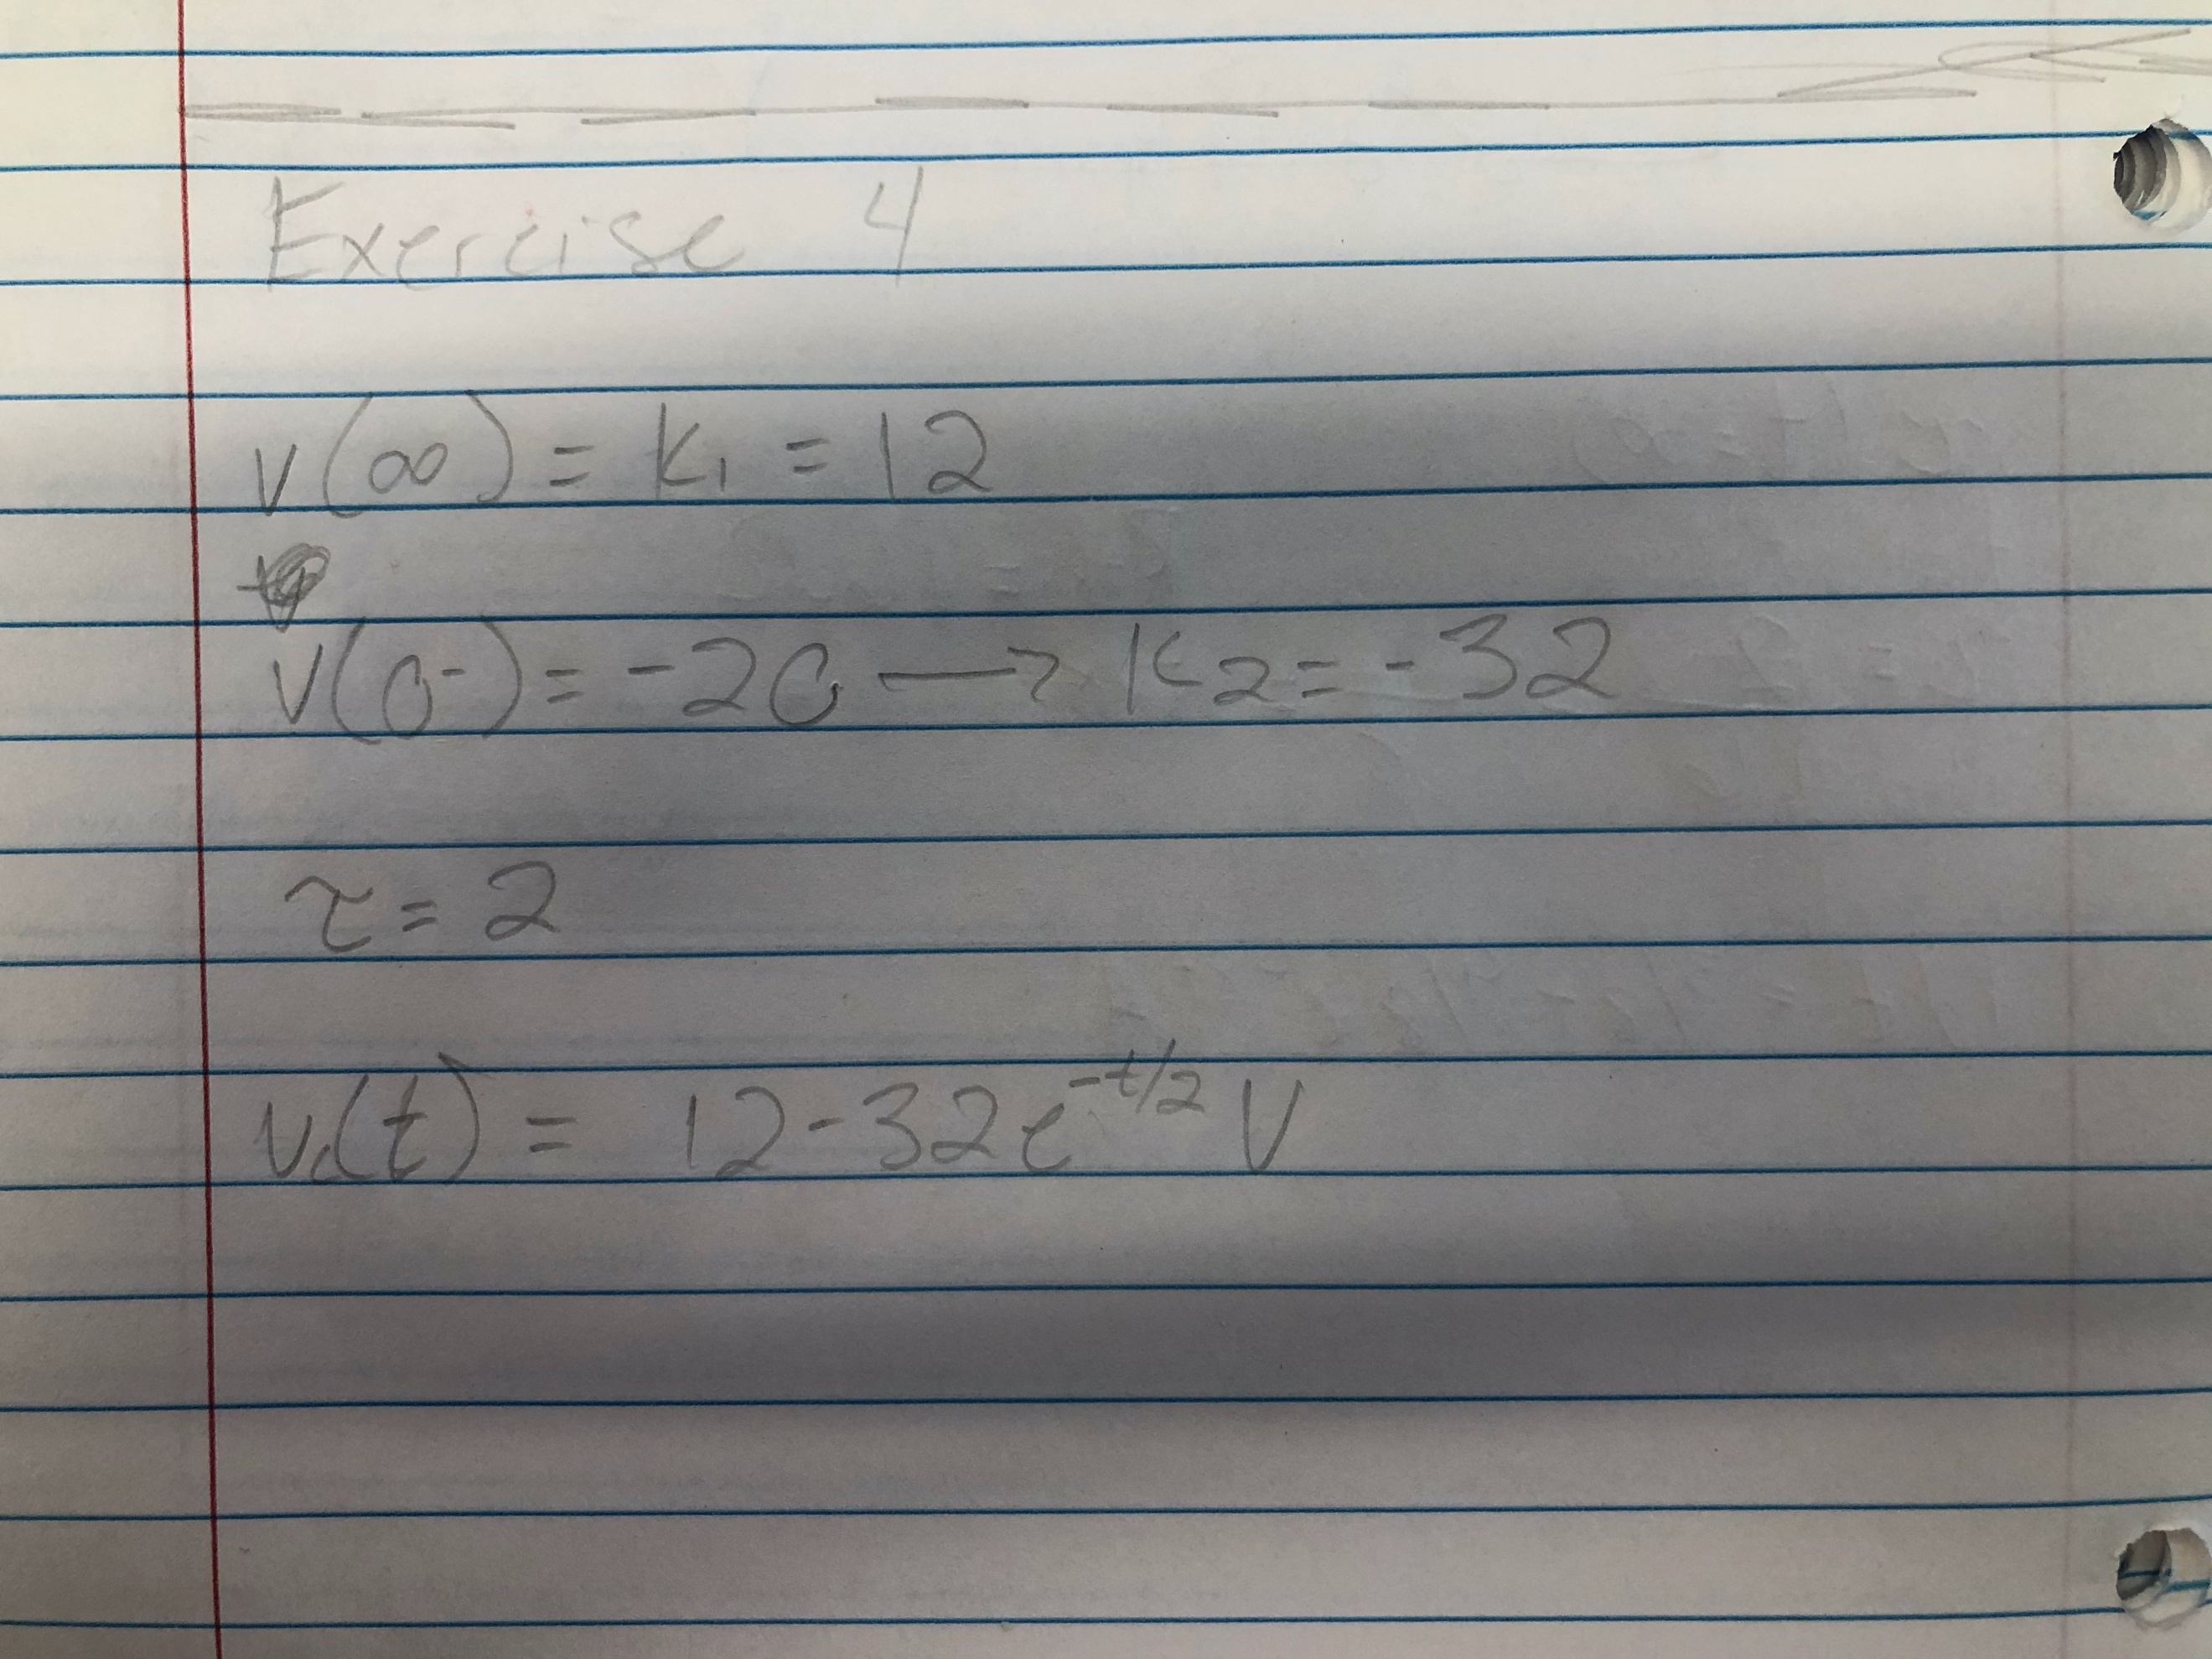 Exercise 4
v(∞) = K₁ = 12
v(0⁻) = -20 → K₂ = -32
τ = 2
v_c(t) = 12 - 32e^{-t/2} V